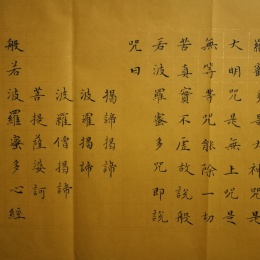 羅蜜多是大神咒是
大明咒是無上咒是
無等等咒能除一切
苦真實不虛故說般
若波羅蜜多咒即說
咒曰
揭諦揭諦
波羅揭諦
波羅僧揭諦
菩提薩婆訶
般若波羅蜜多心經